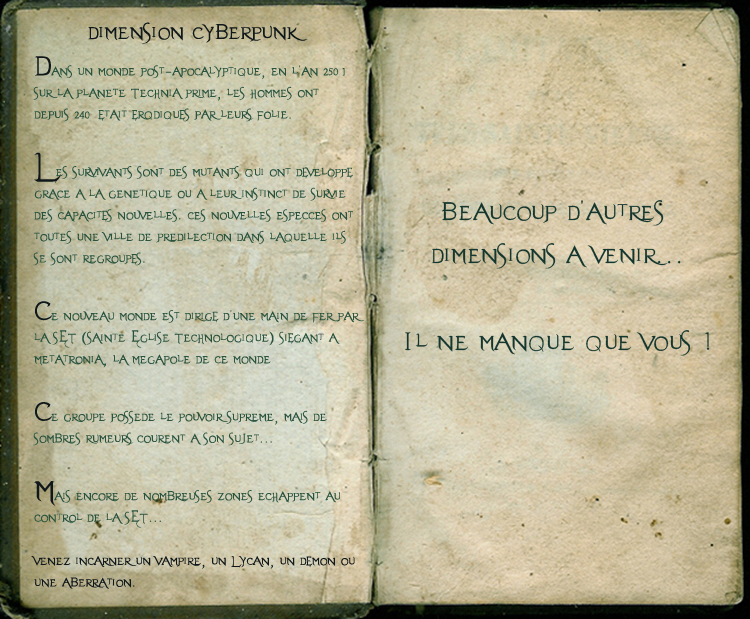 DIMENSION CYBERPUNK
DANS UN MONDE POST-APOCALYPTIQUE, EN L'AN 2501
SUR LA PLANETE TECHNIA PRIME, LES HOMMES ONT
DEPUIS 240 ETAIT ERODIQUES PAR LEURS FOLIE.
LES SURVIVANTS SONT DES MUTANTS QUI ONT DEVELOPPE
GRACE A LA GENETIQUE OU A LEUR INSTINCT DE SURVIE
DES CAPACITES NOUVELLES. CES NOUVELLES ESPECCES ONT
TOUTES UNE VILLE DE PREDILECTION DANS LAQUELLE ILS
SE SONT REGROUPES.
CE NOUVEAU MONDE EST DIRIGE D'UNE MAIN DE FER PAR
LA SET (SAINTE EGLISE TECHNOLOGIQUE) SIEGANT A
METATRONIA, LA MEGAPOLE DE CE MONDE
CE GROUPE POSSEDE LE POUVOIR SUPREME, MAIS DE
SOMBRES RUMEURS COURENT A SON SUJET...
MAIS ENCORE DE NOMBREUSES ZONES ECHAPPENT AU
CONTROL DE LA SET...
VENEZ INCARNER UN VAMPIRE, UN LYCAN, UN DEMON OU
UNE ABERRATION.
BEAUCOUP D'AUTRES
DIMENSIONS A VENIR...
IL NE MANQUE QUE VOUS !